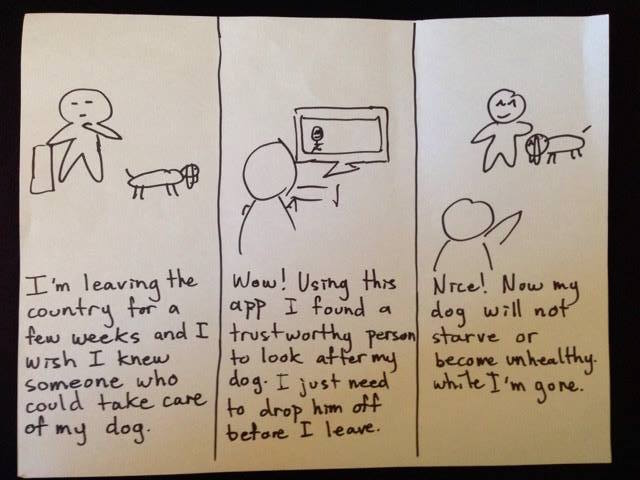 I'm leaving the
country for a
few weeks and I
wish I knew
someone who
could take care
of my dog.
Wow! Using this
app I found a
trustworthy person
to look after my
dog. I just need
to drop him off
before I leave.
Nice! Now my
dog will not
starve or
become unhealthy.
while I'm gone.